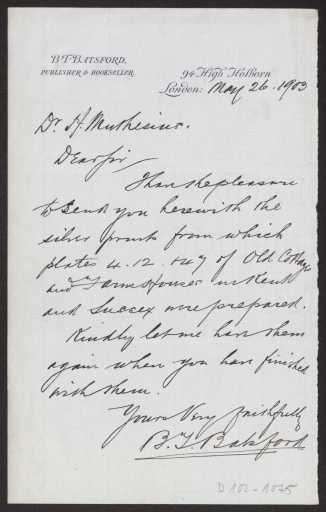 B. T. BATSFORD,
PUBLISHER & BOOKSELLER.
94 High Holborn
London: May 26. 1903
Dr. H. Muthesius.
Dear Sir
I have the pleasure
to send you herewith the
silver prints from which
plates 4. 12. & 47 of Old Cottages
and Farm Houses in Kent
and Sussex were prepared.
Kindly let me have them
again when you have finished
with them.
Yours Very faithfully
B. T. Batsford
D 102-1025